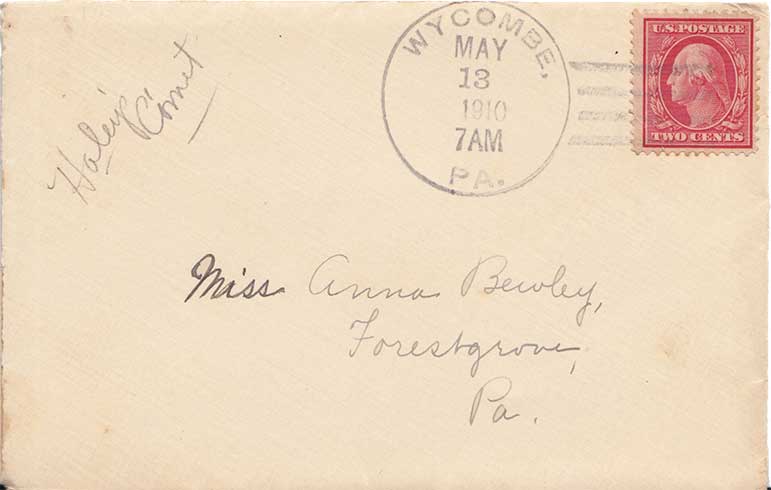 Haley's
Komet
WYCOMBE,
MAY
13
1910
7AM
PA.
U.S. POSTAGE
TWO CENTS
Miss Anna Bewley,
Forestgrove,
Pa.